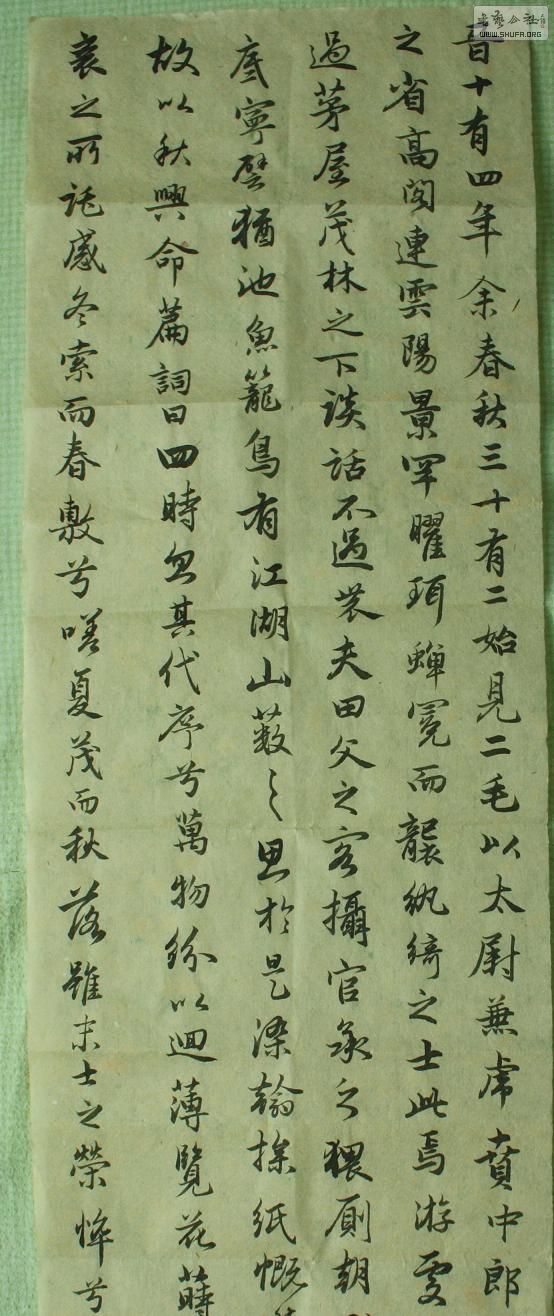 晉十有四年余春秋三十有二始見二毛以太尉兼虎賁中郎
之省高閣連雲陽景罕曜珥蟬冕而襲紈綺之士此焉游處
過茅屋茂林之下談話不過農夫田父之客攝官承乏猥厠朝
底寧譬猶池魚籠鳥有江湖山藪之思於是染翰操紙慨
故以秋興命篇詞曰四時忽其代序兮萬物紛以迴薄覽花蒔
衰之所託感冬索而春敷兮嗟夏茂而秋落雖末士之榮悴兮
WWW.SHUFA.ORG